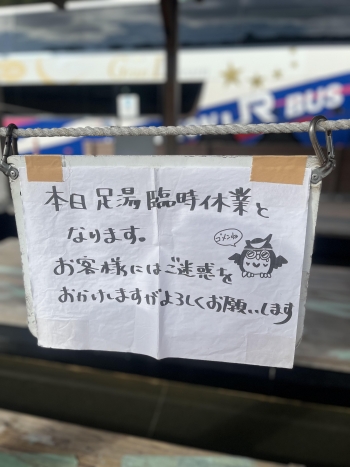 R BUS
本日足湯臨時休業と
なります。
ゴメンね
お客様にはご迷惑を
おかけしますがよろしくお願いします